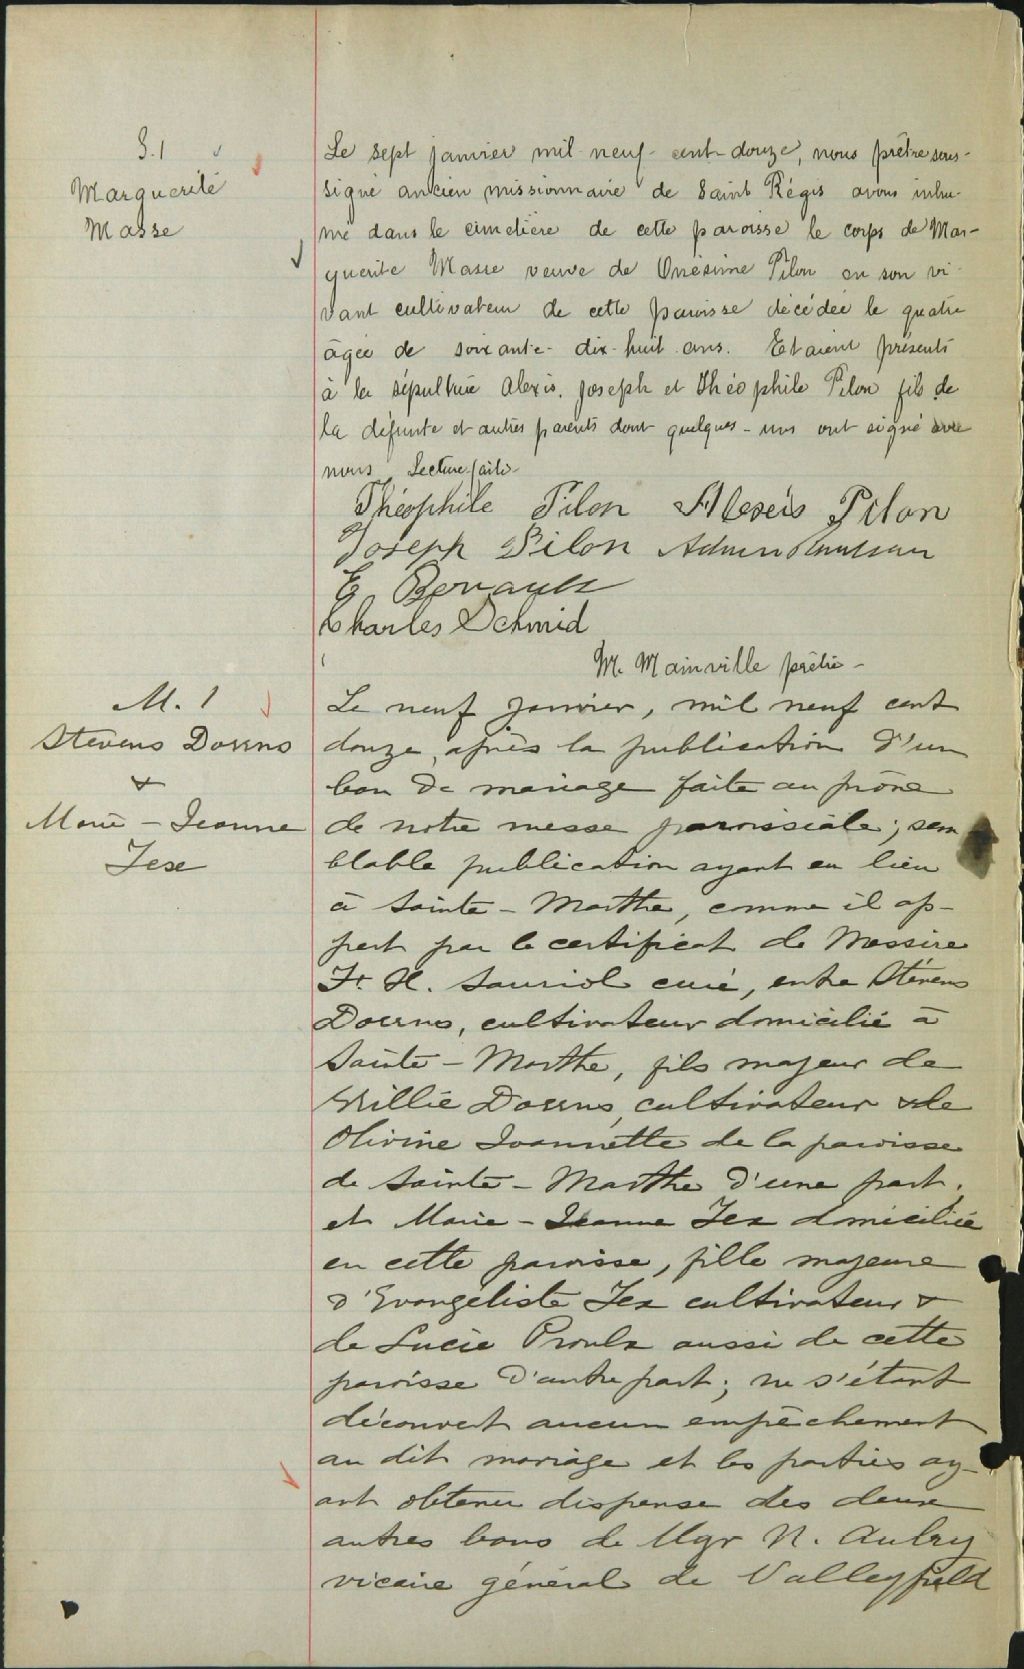 S. 1
Marguerite
Masse
Le sept janvier mil-neuf-cent-douze, nous prêtre sous-
signé ancien missionnaire de Saint Régis avons inhu-
mé dans le cimetière de cette paroisse le corps de Mar-
guerite Masse veuve de Onésime Pilon en son vi-
vant cultivateur de cette paroisse décédée le quatre
âgée de soixante-dix-huit ans. Etaient présents
à la sépulture Alexis, Joseph et Théophile Pilon fils de
la défunte et autres parents dont quelques-uns ont signé avec
nous Lecture faite-
Théophile Pilon Alexis Pilon
Joseph Pilon
E
Charles Schmid
M. Mainville prêtre-
M. 1
Stevens Downs
&
Marie-Jeanne
Jex
Le neuf janvier, mil neuf cent
douze, après la publication d'un
ban de mariage faite au prône
de notre messe paroissiale; sem
blable publication ayant eu lieu
à Sainte-Marthe, comme il ap-
pert par le certificat de Messire
F. H. Sauriol curé, entre Stévens
Downs, cultivateur domicilié à
Sainte-Marthe, fils majeur de
Willie Downs, cultivateur & de
Olivine Joannette de la paroisse
de Sainte-Marthe d'une part;
et Marie-Jeanne Jex domiciliée
en cette paroisse, fille majeure
d'Evangéliste Jex cultivateur &
de Lucie Proulx aussi de cette
paroisse d'autre part; ne s'étant
découvert aucun empêchement
au dit mariage et les parties ay-
ant obtenu dispense des deux
autres bans de Mgr N. Aubry
vicaire général de Valleyfield